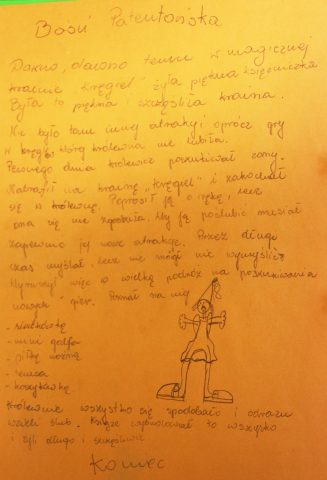 Baśń Patentońska
Dawno, dawno temu w magicznej
krainie "Kręgiel" żyła piękna księżniczka.
Była to piękna i szczęśliwa kraina.
Nie było tam innej atrakcji oprócz gry
w kręgle, którą królewna nie lubiła.
Pewnego dnia królewicz poszukiwał żony.
Natrafił na krainę "Kręgiel" i zakochał
się w królewnie. Poprosił ją o rękę, lecz
ona się nie zgodziła. Aby ją poślubić musiał
zapewnić jej nowe atrakcje. Przez długi
czas myślał, lecz nic mógł nie wymyślić.
Wyruszył więc o wielką podróż na poszukiwania
nowych gier. Poznał na niej
- siatkówkę
- mini golfa
- piłkę nożną
- tenisa
- koszykówkę
Królewnie wszystko się spodobało i odrazu
wzieli ślub. Książe wybudował to wszysko
i żyli długo i szczęśliwie
Koniec